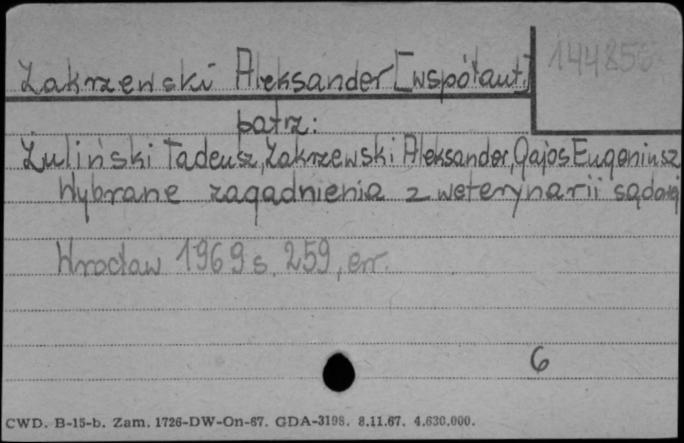 Zakrzewski Aleksander [współaut.]
patrz:
Żuliński Tadeusz, Zakrzewski Aleksander, Gajos Eugeniusz
Wybrane zagadnienia z weterynarii sądowej
Wrocław 1969 s. 259, err.
6
CWD. B-15-b. Zam. 1726-DW-On-67. GDA-3198. 8.11.67. 4.630.000.